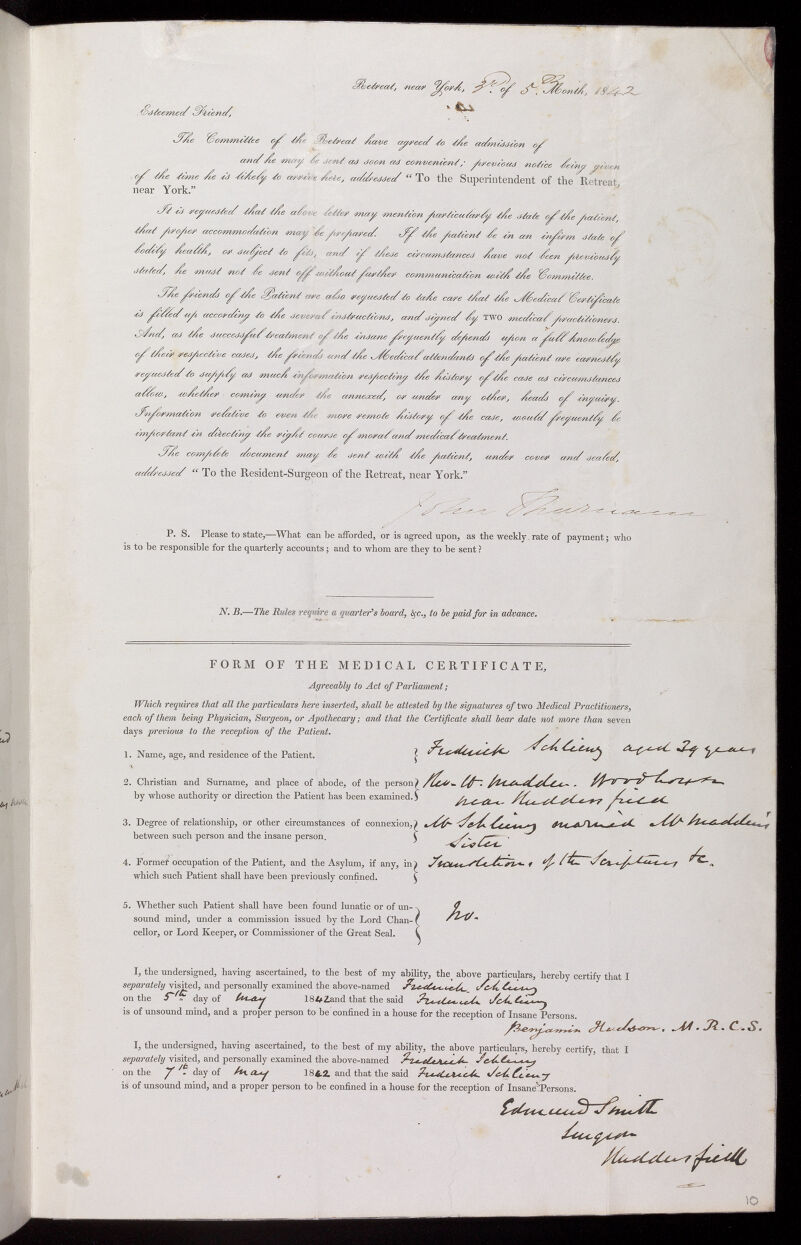 Retreat, near York, 3rd of 5th Month, 1842
Esteemed Friend,
The Committee of the Retreat have agreed to the admission of
and he may be sent as soon as convenient; previous notice being given
of the time he is likely to arrive here, addressed "To the Superintendent of the Retreat,
near York."
It is requested that the above letter may mention particularly the state of the patient,
that proper accommodation may be prepared. If the patient be in an infirm state of
bodily health, or subject to fits, and if these circumstances have not been previously
stated, he must not be sent off without further communication with the Committee.
The friends of the Patient are also requested to take care that the Medical Certificate
is filled up according to the several instructions, and signed by TWO medical practitioners.
And, as the successful treatment of the insane frequently depends upon a full knowledge
of their respective cases, the friends and the Medical attendants of the patient are earnestly
requested to supply as much information respecting the history of the case as circumstances
allow, whether coming under the annexed, or under any other, heads of inquiry.
Information relative to even the more remote history of the case, would frequently be
important in directing the right course of moral and medical treatment.
The complete document may be sent with the patient, under cover and sealed,
addressed "To the Resident-Surgeon of the Retreat, near York."
John Thurnam
P. S. Please to state,—What can be afforded, or is agreed upon, as the weekly rate of payment; who
is to be responsible for the quarterly accounts; and to whom are they to be sent?
N. B.—The Rules require a quarter's board, &c., to be paid for in advance.
FORM OF THE MEDICAL CERTIFICATE,
Agreeably to Act of Parliament;
Which requires that all the particulars here inserted, shall be attested by the signatures of two Medical Practitioners,
each of them being Physician, Surgeon, or Apothecary; and that the Certificate shall bear date not more than seven
days previous to the reception of the Patient.
1. Name, age, and residence of the Patient. Frederick Schlieng aged 39 years
2. Christian and Surname, and place of abode, of the person Rev. W. Madden. Woodhouse
by whose authority or direction the Patient has been examined. near Huddersfield
3. Degree of relationship, or other circumstances of connexion, Mr Schlieng married Mr Madden's
between such person and the insane person. Sister
4. Former occupation of the Patient, and the Asylum, if any, in Translations of the Scriptures &c.
which such Patient shall have been previously confined.
5. Whether such Patient shall have been found lunatic or of un-
sound mind, under a commission issued by the Lord Chan- No.
cellor, or Lord Keeper, or Commissioner of the Great Seal.
I, the undersigned, having ascertained, to the best of my ability, the above particulars, hereby certify that I
separately visited, and personally examined the above-named Frederick Schlieng
on the 5th day of May 1842 and that the said Frederick Schlieng
is of unsound mind, and a proper person to be confined in a house for the reception of Insane Persons.
Benjamin Hudson. M.R.C.S.
I, the undersigned, having ascertained, to the best of my ability, the above particulars, hereby certify, that I
separately visited, and personally examined the above-named Frederick Schlieng
on the 7th day of May 1842 and that the said Frederick Schlieng
is of unsound mind, and a proper person to be confined in a house for the reception of Insane Persons.
Edmund Smith
Surgeon
Huddersfield
10